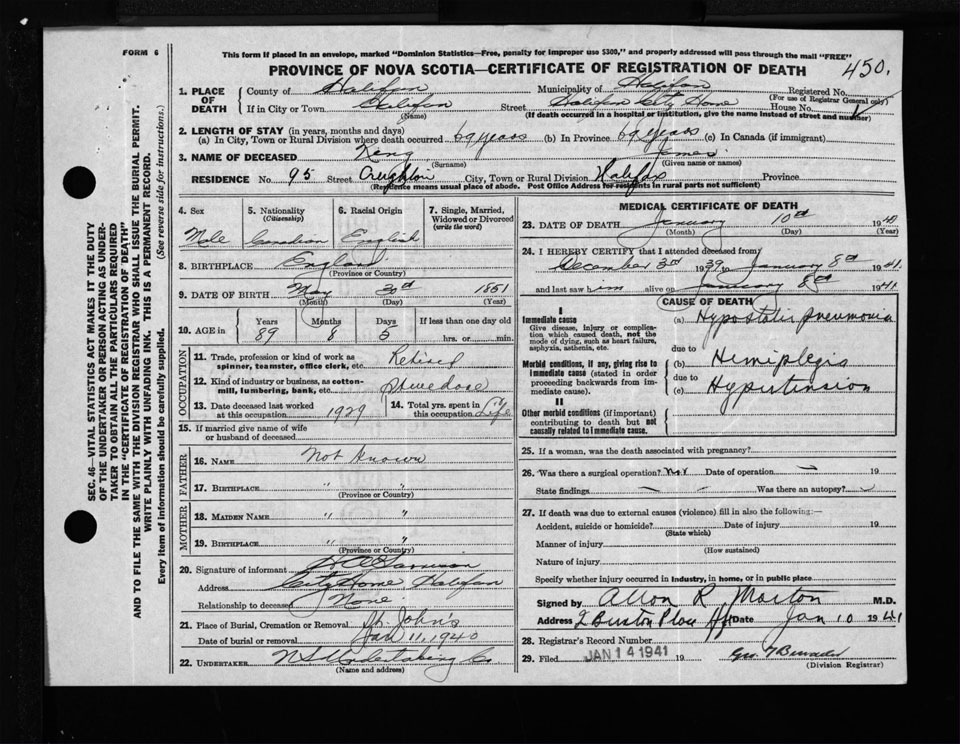 FORM 6
This form if placed in an envelope, marked "Dominion Statistics—Free, penalty for improper use $300," and properly addressed will pass through the mail "FREE"
PROVINCE OF NOVA SCOTIA—CERTIFICATE OF REGISTRATION OF DEATH 450.
1. PLACE OF DEATH
County of Halifax Municipality of Halifax Registered No.
(For use of Registrar General only)
If in City or Town Halifax Street Halifax City Home House No.
(Name) (If death occurred in a hospital or institution, give the name instead of street and number)
2. LENGTH OF STAY (in years, months and days)
(a) In City, Town or Rural Division where death occurred 69 years (b) In Province 69 years (c) In Canada (if immigrant)
3. NAME OF DECEASED King James
(Surname) (Given name or names)
RESIDENCE No. 95 Street Creighton City, Town or Rural Division Halifax Province
(Residence means usual place of abode. Post Office Address for residents in rural parts not sufficient)
4. Sex Male
5. Nationality (Citizenship) Canadian
6. Racial Origin English
7. Single, Married, Widowed or Divorced (write the word)
8. BIRTHPLACE England
(Province or Country)
9. DATE OF BIRTH May 3rd 1851
(Month) (Day) (Year)
10. AGE in Years 89 Months 8 Days 5 If less than one day old hrs. or min.
OCCUPATION
11. Trade, profession or kind of work as spinner, teamster, office clerk, etc. Retired
12. Kind of industry or business, as cotton-mill, lumbering, bank, etc.
13. Date deceased last worked at this occupation 1929
14. Total yrs. spent in this occupation Life
15. If married give name of wife or husband of deceased
FATHER
16. NAME Not Known
17. BIRTHPLACE " "
(Province or Country)
MOTHER
18. MAIDEN NAME " "
19. BIRTHPLACE " "
(Province or Country)
20. Signature of informant
Address City Home Halifax
Relationship to deceased None
21. Place of Burial, Cremation or Removal St. John's
Date of burial or removal Jan 11, 1940
22. UNDERTAKER N S Undertaking Co
(Name and address)
MEDICAL CERTIFICATE OF DEATH
23. DATE OF DEATH January 10th 194
(Month) (Day) (Year)
24. I HEREBY CERTIFY that I attended deceased from
December 3rd 1939 to January 8th 1941.
and last saw him alive on January 8th 1941
CAUSE OF DEATH
I
Immediate cause
Give disease, injury or complication which caused death, not the mode of dying, such as heart failure, asphyxia, asthenia, etc.
(a) Hypostatic pneumonia
due to
Morbid conditions, if any, giving rise to immediate cause (stated in order proceeding backwards from immediate cause).
(b) Hemiplegia
due to
(c) Hypertension
II
Other morbid conditions (if important) contributing to death but not causally related to immediate cause.
25. If a woman, was the death associated with pregnancy?
26. Was there a surgical operation? Date of operation 19
State findings Was there an autopsy?
27. If death was due to external causes (violence) fill in also the following:—
Accident, suicide or homicide? Date of injury 19
(State which)
Manner of injury
(How sustained)
Nature of injury
Specify whether injury occurred in industry, in home, or in public place
Signed by Allan R Morton M.D.
Address Date Jan 10 1941
28. Registrar's Record Number
29. Filed JAN 14 1941 19
(Division Registrar)
SEC. 46—VITAL STATISTICS ACT MAKES IT THE DUTY
OF THE UNDERTAKER OR PERSON ACTING AS UNDER-
TAKER TO OBTAIN ALL THE PARTICULARS REQUIRED
IN THE "CERTIFICATE OF REGISTRATION OF DEATH"
AND TO FILE THE SAME WITH THE DIVISION REGISTRAR WHO SHALL ISSUE THE BURIAL PERMIT.
WRITE PLAINLY WITH UNFADING INK. THIS IS A PERMANENT RECORD.
Every item of information should be carefully supplied. (See reverse side for instructions.)